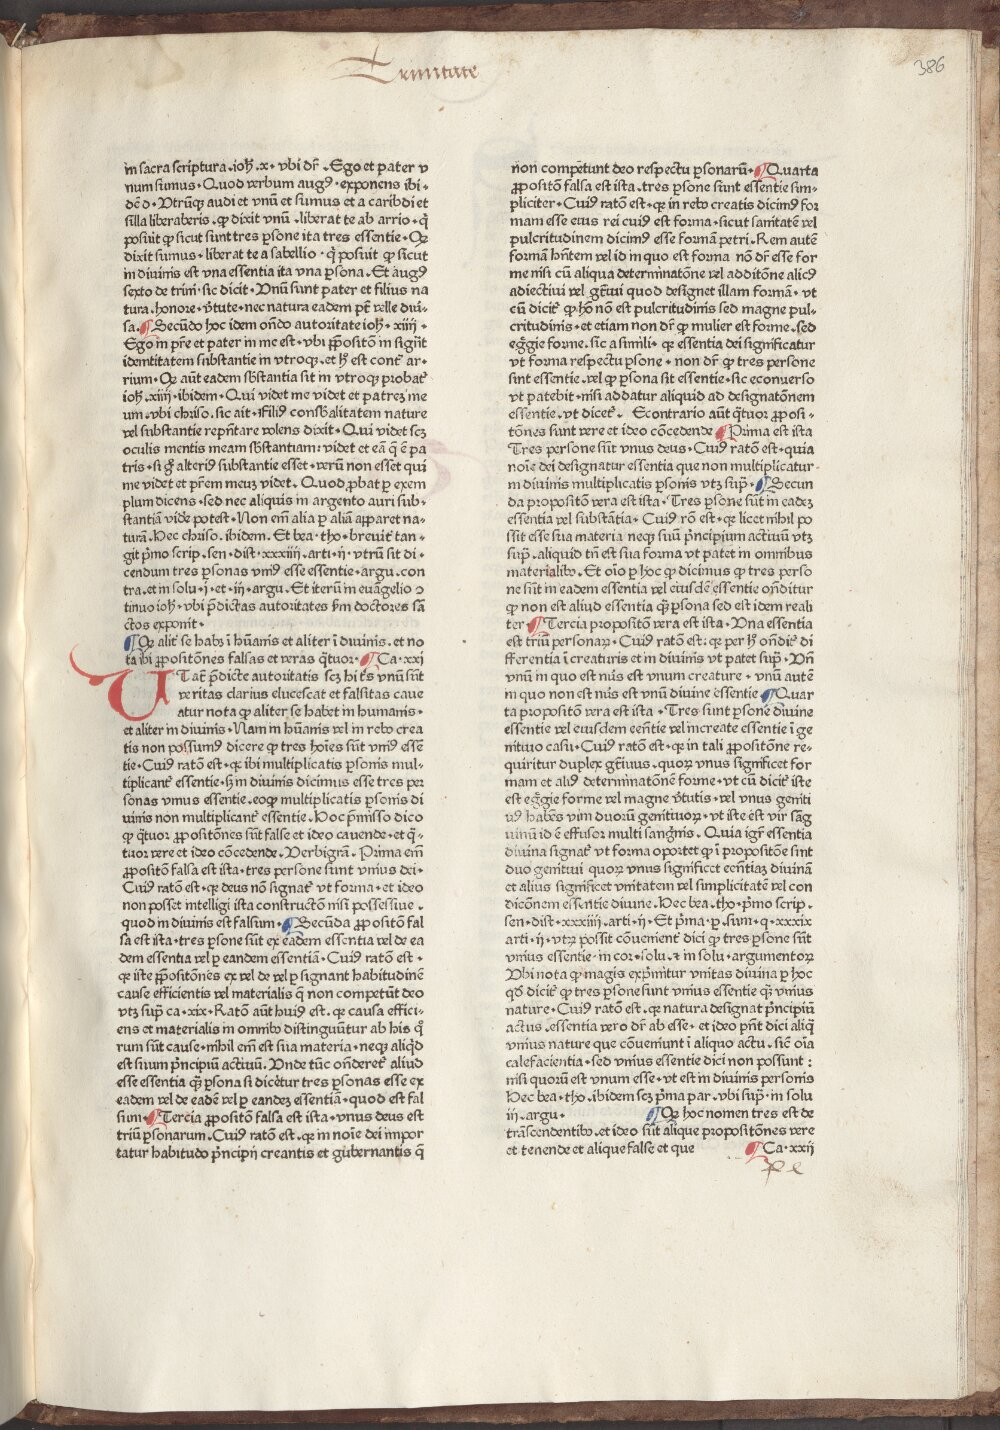 Trinitate
386
in sacra scriptura.ioh̄.x. vbi dr̄. Ego et pater v
num sumus. Quod verbum augꝯ. exponens ibi.
dē d. Vtrūqꝫ audi et vnū et sumus et a caribdi et
silla liberaberis. ꝙ dixit vnū .liberat te ab arrio. q̄
posuit ꝙ sicut sunt tres ꝑsone ita tres essentie. Qꝫ
dixit sumus. liberat te a sabellio. q̄ posuit ꝙ sicut
in diuinis est vna essentia ita vna ꝑsona. Et augꝯ
sexto de trini. sic dicit. Vnū sunt pater et filius na
tura.honore.v̄tute.nec natura eadem pr̄t velle diui-
sa. ¶Secūdo hoc idem on̄do autoritate ioh̄. xiiij.
Ego in pr̄e et pater in me est. vbi p̄positōn in signīt
identitatem substantie in vtroqꝫ. et h̄ est contr̄ ar-
rium. Qꝫ aūt eadem sb̄stantia sit in vtroqꝫ probat̄
ioh̄. xiiij. ibidem. Qui videt me videt et patreꝫ me
um.vbi chriso. sic ait. Filiꝯ consb̄alitatem nature
vel substantie rep̄ntare volens dixit. Qui videt scꝫ
oculis mentis meam sb̄stantiam: videt et eā q̄ ē pa
tris. si gͥ alteriꝯ substantie esset. verū non esset qui
me videt et pr̄em meuꝫ videt. Quod ꝓbat ꝑ exem
plum dicens. sed nec aliquis in argento auri sub-
stantiā vide potest. Non em̄ alia ꝑ aliā apparet na-
turā. Hec chriso. ibidem. Et bea. tho. breuit̄ tan-
git p̄mo scrip.sen. dist. xxxiiij. arti. ij. vtrū sit di-
cendum tres ꝑsonas vniꝯ esse essentie. argu. con
tra. et in solu.i. et. iij. argu. Et iterū in euāgelio ↄ
tinuo ioh̄. vbi p̄dictas autoritates s̄m doctores sā
ctos exponit.
¶Qꝫ alit̄ se habꝫ ī hūanis et aliter ī diuinis. et no
ta ibi ꝓpositōnes falsas et veras q̄tuor. ¶Ca. xxi
UTat̄ p̄dicte autoritatis scꝫ hi t̄s vnū sūt
veritas clarius elucescat et falsitas caue
atur nota ꝙ aliter se habet in humanis.
et aliter in diuinis. Nam in hūanis vel in rebꝯ crea
tis non possumꝯ dicere ꝙ tres hoīes sūt vniꝯ essē
tie. Cuiꝯ ratō est. qꝫ ibi multiplicatis ꝑsonis mul-
tiplicant̄ essentie. sꝫ in diuinis dicimus esse tres per
sonas vnius essentie. eoqꝫ multiplicatis ꝑsonis di
uinis non multiplicant̄ essentie. Hoc p̄misso dico
ꝙ q̄tuor ꝓpositōnes sūt false et ideo cauende. et q̄-
tuor vere et ideo cōcedende. Verbigrā. Prima em̄
ꝓpositō falsa est ista. tres persone sunt vnius dei.
Cuiꝯ ratō est. qꝫ deus nō signat̄ vt forma. et ideo
non posset intelligi ista constructō nisi possessiue.
quod in diuinis est falsum. ¶Secūda ꝓpositō fal
sa est ista. tres ꝑsone sūt ex eadem essentia vel de ea
dem essentia vel ꝑ eandem essentiā. Cuiꝯ ratō est.
qꝫ iste p̄positōnes ex vel de vel ꝑ signant habitudinē
cause efficientis vel materialis q̄ non competūt deo
vtꝫ sup̄ ca.xix. Ratō aūt huiꝯ est. qꝫ causa effici-
ens et materialis in omnibꝯ distinguūtur ab his q̊
rum sūt cause. nihil em̄ est sua materia. neqꝫ aliqͥd
est suum p̄ncipiū actiuū. Vnde tūc on̄deret̄ aliud
esse essentia qꝫ̄ ꝑsona si dicētur tres ꝑsonas esse ex
eadem vel de eadē vel ꝑ eandeꝫ essentiā. quod est fal
sum. ¶Tercia ꝓpositō falsa est ista. vnus deus est
triū ꝑsonarum. Cuiꝯ ratō est. qꝫ in noīe dei impor
tatur habitudo p̄ncipij creantis et gubernantis q̄
non competunt deo respectu ꝑsonarū. ¶Quarta
ꝓpositō falsa est ista. tres ꝑsone sunt essentie sim-
pliciter. Cuiꝯ ratō est. qꝫ in rebꝯ creatis dicimꝯ for
mam esse eius rei cuiꝯ est forma. sicut sanitatē vel
pulcritudinem dicimꝯ esse formā petri. Rem autē
formam hn̄tem vel id in quo est forma nō dr̄ esse for
me nisi cū aliqua determinatōne vel additōne alicꝯ
adiectiui vel gt̄iui quod designet illam formā. vt
cū dicit̄ ꝙ hō nō est pulcritudinis sed magne pul-
critudinis. et etiam non dr̄ ꝙ mulier est forme. sed
eḡgie forme. sic a simili. qꝫ essentia dei significatur
vt forma respectu ꝑsone. non dr̄ ꝙ tres persone
sint essentie. vel ꝙ ꝑsona sit essentie. sic econuerso
vt patebit. nisi addatur aliquid ad designatōnem
essentie.vt dicet̄. Econtrario aūt q̄tuor ꝓposi-
tōnes sunt vere et ideo cōcedende ¶Prima est ista
Tres persone sūt vnus deus. Cuiꝯ ratō est. quia
noīe dei designatur essentia que non multiplicatur.
in diuinis multiplicatis ꝑsonis vtꝫ sup̄. ¶Secun
da propositō vera est ista. Tres ꝑsone sūt in eadeꝫ
essentia vel substātia. Cuiꝯ rō est. qꝫ licet nihil po
ssit esse sua materia neqꝫ suū p̄ncipium actiuū vtꝫ
sup̄. aliquid tn̄ est sua forma vt patet in omnibus
materialibꝯ. Et oīo ꝑ hoc ꝙ dicimus ꝙ tres perso
ne sūt in eadem essentia vel eiusdē essentie on̄ditur
ꝙ non est aliud essentia qꝫ̄ ꝑsona sed est idem reali
ter. ¶Tercia propositō vera est ista. Vna essentia
est triū personaꝝ. Cuiꝯ ratō est. qꝫ per h̄ on̄dit̄ di
fferentia ī creaturis et in diuinis vt patet sup̄. Vn̄
vnū in quo est nr̄us est vnum creature. vnū autē
in quo non est nr̄us est vnū diuine essentie ¶Quar
ta propositō vera est ista. Tres sunt ꝑsone diuine
essentie vel eiusdem een̄tie vel increate essentie ī ge
nitiuo casu. Cuiꝯ ratō est. qꝫ in tali ꝓpositōne re-
quiritur duplex gt̄iuus. quoꝝ vnus significet for
mam et aliꝯ determinatōnē forme. vt cū dicit̄ iste
est eḡgie forme vel magne v̄tutis. vel vnus geniti
uꝯ habens vim duorū genitiuoꝝ. vt iste est vir sāg
uinū id ē effusor multi sangīnis. Quia igr̄ essentia
diuina signat̄ vt forma oportet ꝙ ī propositōe sint
duo genitiui quoꝝ vnus significet een̄tiaꝫ diuinā
et alius significet vnitatem vel simplicitatē vel con
dicōnem essentie diuine. Hec bea.tho. p̄mo scrip.
sen. dist. xxxiiij. arti.ij. Et p̄ma.p̄.sum.q.xxxix
arti.ij. vtꝝ possit cōuenient̄ dici ꝙ tres ꝑsone sūt
vnius essentie.in cor.solu.⁊ in solu. argumentoꝝ
Vbi nota ꝙ magis exp̄mitur vnitas diuina ꝑ hoc
qd̄ dicit̄ ꝙ tres ꝑsone sunt vnius essentie qꝫ̄ vnius
nature. Cuiꝯ ratō est. qꝫ natura designat p̄ncipiū
actus. essentia vero dr̄ ab esse. et ideo pn̄t dici aliq̄
vnius nature que cōueniunt ī aliquo actu. sicē oīa
calefacientia. sed vnius essentie dici non possunt:
nisi quorū est vnum esse. vt est in diuinis personis
Hec bea.tho.ibidem scꝫ p̄ma par.vbi sup̄.in solu
iij.argu. ¶Qꝫ hoc nomen tres est de
trāscendentibꝯ.et ideo sūt alique propositōnes vere
et tenende et alique false et que ¶Ca.xxij